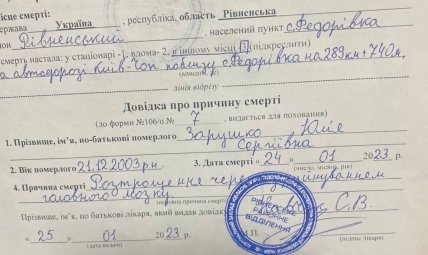 ісце смерті:
ержава Україна , республіка, область Рівненська
йон Рівненський , населений пункт с.Федорівка
смерть настала: у стаціонарі -1, вдома- 2, в іншому місці 3 (підкреслити)
на автодорозі Київ-Чоп поблизу с.Федорівка на 289км+740м,
(вписати)
лінія відрізу
Довідка про причину смерті
(до форми №106/о № 7 , видається для поховання)
1. Прізвище, ім'я, по-батькові померлого Зарушко Юлія
Сергіївна
2. Вік померлого 21.12.2003р.н. 3. Дата смерті « 24 » 01 2023 р.
(число, місяць, рік)
4. Причина смерті Розтрощення чере
головного мозку
(основна причина смерт
Прізвище, ім'я, по батькові лікаря, який видав довідку С.В.
« 25 » 01 2023 р. М.П.
(дата видачі) (підпис лікаря)
РІВНЕНСЬКЕ
РАЙОННЕ
ВІДДІЛЕННЯ